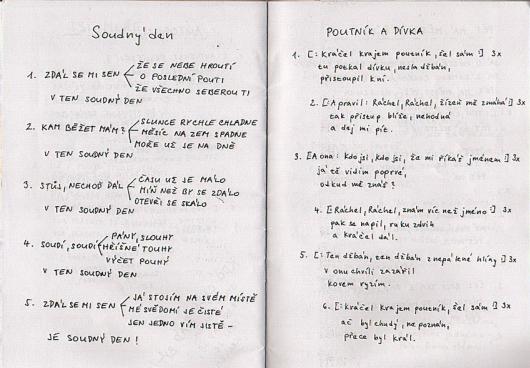 Soudný den
1. ZDÁL SE MI SEN
ŽE SE NEBE HROUTÍ
O POSLEDNÍ POUTI
ŽE VŠECHNO SEBEROU TI
V TEN SOUDNÝ DEN
2. KAM BĚŽET MÁM?
SLUNCE RYCHLE CHLADNE
MĚSÍC NA ZEM SPADNE
MOŘE UŽ JE NA DNĚ
V TEN SOUDNÝ DEN
3. STŮJ, NECHOĎ DÁL
ČASU UŽ JE MÁLO
MÍŇ NEŽ BY SE ZDÁLO
OTEVŘI SE SKÁLO
V TEN SOUDNÝ DEN
4. SOUDÍ, SOUDÍ
PÁNY, SLOUHY
HŘÍŠNÉ TOUHY
VÝČET POUHÝ
V TEN SOUDNÝ DEN
5. ZDÁL SE MI SEN
JÁ STOJÍM NA SVÉM MÍSTĚ
MÉ SVĚDOMÍ JE ČISTÉ
JEN JEDNO VÍM JISTĚ –
JE SOUDNÝ DEN!
POUTNÍK A DÍVKA
1. [: Kráčel krajem poutník, šel sám :] 3x
tu potkal dívku, nesla džbán,
přistoupil k ní.
2. [: A pravil: Ráchel, Ráchel, žízeň mě zmáhá :] 3x
tak přistup blíže, nehodná
a dej mi pít.
3. [: A ona: Kdo jsi, kdo jsi, že mi říkáš jménem :] 3x
já tě vidím poprvé,
odkud mě znáš?
4. [: Ráchel, Ráchel, znám víc než jméno :] 3x
pak se napil, ruku zdvih
a kráčel dál.
5. [: Ten džbán, ten džbán z nepálené hlíny :] 3x
v onu chvíli zazářil
kovem ryzím.
6. [: Kráčel krajem poutník, šel sám :] 3x
ač byl chudý, nepoznán,
přece byl král.